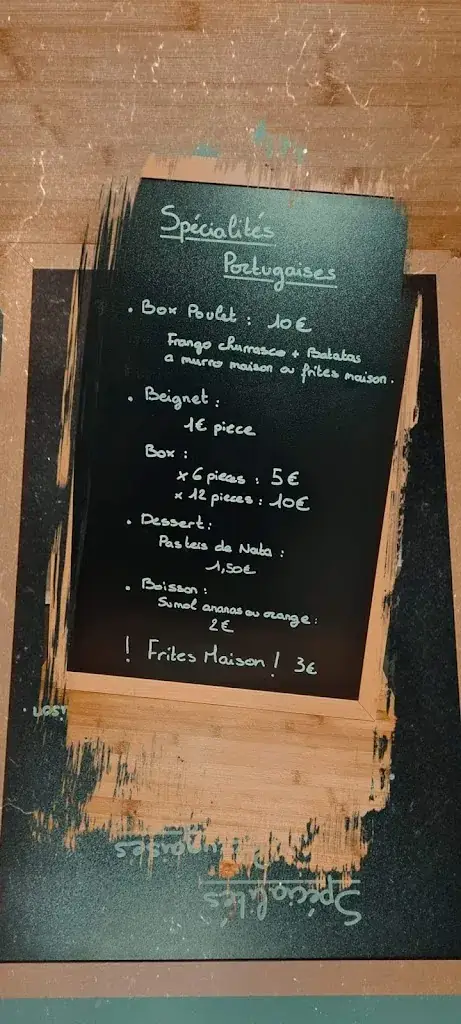 Spécialités
Portugaises
. Box Poulet : 10€
Frango churrasco + Batatas
a murro maison ou frites maison.
. Beignet :
1€ piece
Box :
x 6 pieces : 5€
x 12 pieces : 10€
. Dessert :
Pasteis de Nata :
1,50€
. Boisson :
Sumol ananas ou orange :
2€
! Frites Maison ! 3€
Spécialités